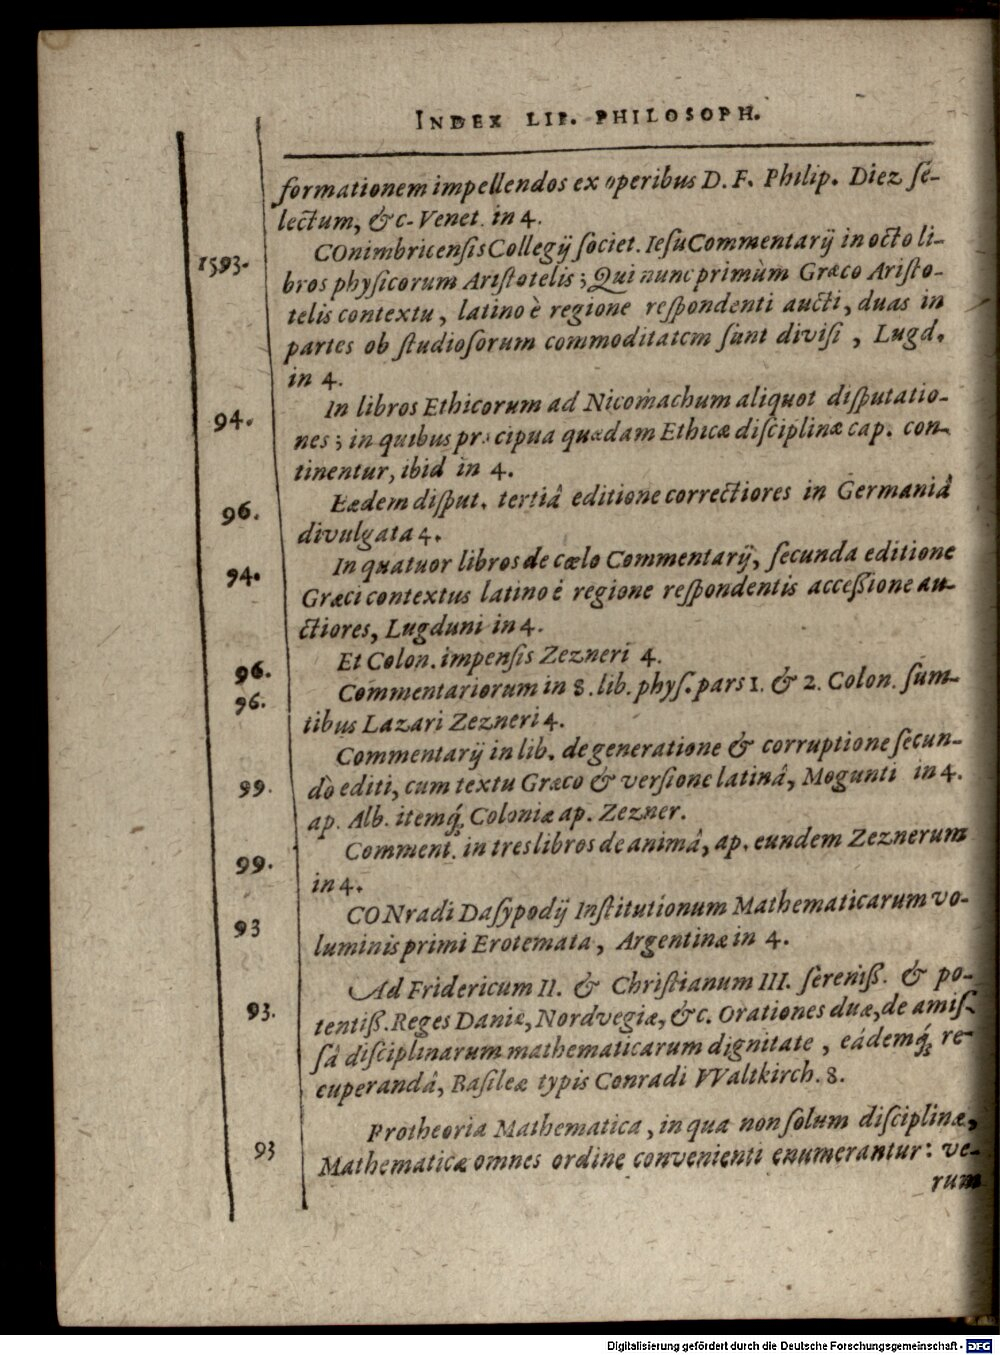 INDEX LIB. PHILOSOPH.
formationem impellendos ex operibus D. F. Philip. Diez ſe-
lectum, &c. Venet. in 4.
1593. COnimbricenſis Collegij ſociet. Ieſu Commentarij in octo li-
bros phyſicorum Ariſtotelis; Qui nunc primùm Græco Ariſto-
telis contextu, latino è regione reſpondenti aucti, duas in
partes ob ſtudioſorum commoditatem ſunt diviſi, Lugd.
in 4.
94. In libros Ethicorum ad Nicomachum aliquot diſputatio-
nes; in quibus præcipua quædam Ethicæ diſciplinæ cap. con-
tinentur, ibid in 4.
96. Eædem diſput. tertiâ editione correctiores in Germaniâ
divulgata 4.
94. In quatuor libros de cœlo Commentarij, ſecunda editione
Græci contextus latino è regione reſpondentis acceßione au-
ctiores, Lugduni in 4.
96. Et Colon. impenſis Zezneri 4.
96. Commentariorum in 8. lib. phyſ. pars 1. & 2. Colon. ſum-
tibus Lazari Zezneri 4.
Commentarij in lib. de generatione & corruptione ſecun-
99. dò editi, cum textu Græco & verſione latinâ, Mogunti in 4.
ap. Alb. itemq́; Coloniæ ap. Zezner.
99. Comment. in tres libros de animâ, ap. eundem Zeznerum
in 4.
93 CONradi Daſypodij Inſtitutionum Mathematicarum vo-
luminis primi Erotemata, Argentinæ in 4.
93. Ad Fridericum II. & Chriſtianum III. ſereniß. & po-
tentiß. Reges Daniæ, Nordvegiæ, &c. Orationes duæ, de amiſ-
ſâ diſciplinarum mathematicarum dignitate, eádemq́; re-
cuperandâ, Baſileæ typis Conradi VValtkirch. 8.
93 Protheoria Mathematica, in qua non ſolum diſciplinæ,
Mathematicæ omnes ordine convenienti enumerantur: ve-
rum
Digitalisierung gefördert durch die Deutsche Forschungsgemeinschaft - DFG